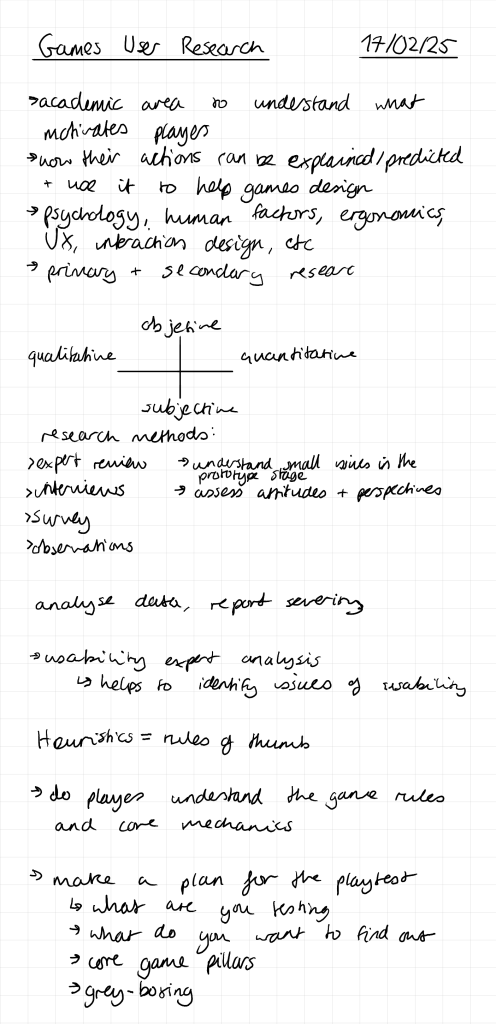 Games User Research 17/02/25
→ academic area to understand what
motivates players
→ how their actions can be explained/predicted
+ use it to help games design
→ psychology, human factors, ergonomics,
UX, interaction design, etc
→ primary + secondary researc
objetive
qualitative quantitative
subjective
research methods:
> expert review → understand small issues in the
prototype stage
> interviews → assess attitudes + perspectives
> survey
> observations
analyse data, report severing
→ usability expert analysis
↳ helps to identify issues of usability
Heuristics = rules of thumb
→ do player understand the game rules
and core mechanics
→ make a plan for the playtest
↳ what are you testing
→ what do you want to find out
→ core game pillars
→ grey-boxing